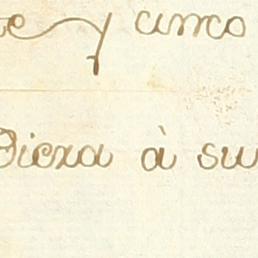 y cinco
Diexa à su